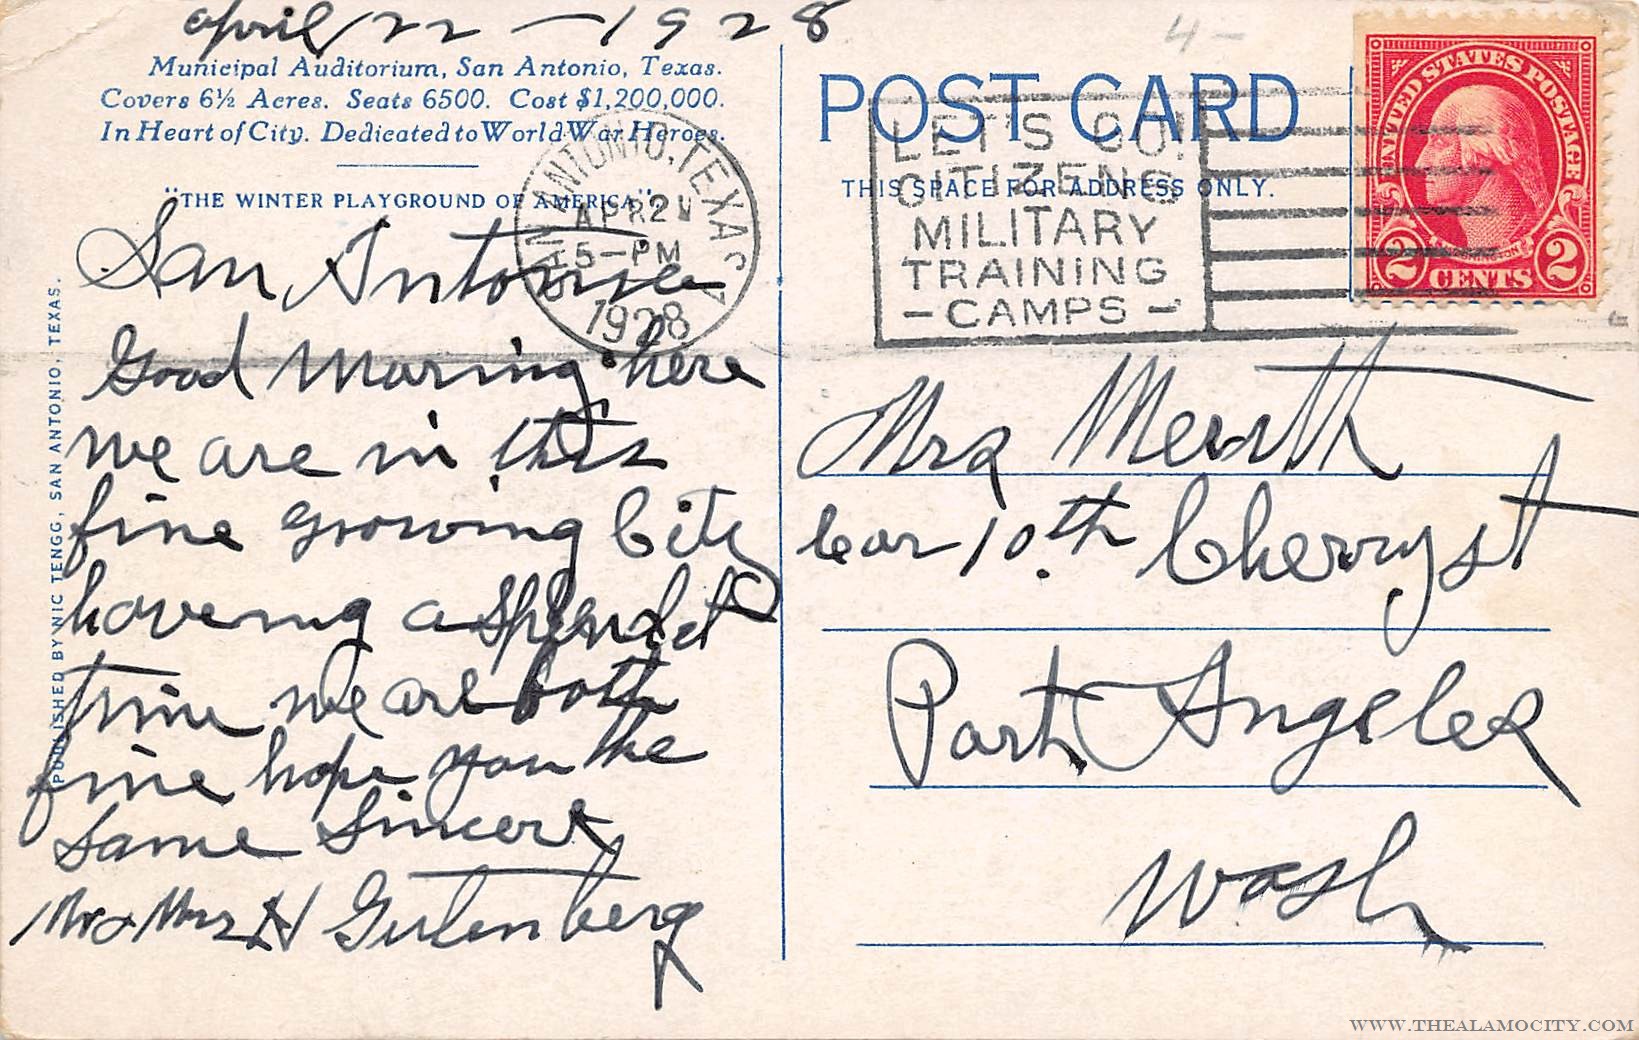 april 22 - 1928
Municipal Auditorium, San Antonio, Texas.
Covers 6½ Acres. Seats 6500. Cost $1,200,000.
In Heart of City. Dedicated to World War Heroes.
"THE WINTER PLAYGROUND OF AMERICA"
San Antonio
Good Morning here
we are in this
fine growing City
having a splendid
time we are both
fine hope you the
same Sincere
Mr & Mrs H Gutenberg
PUBLISHED BY NIC TENGG, SAN ANTONIO, TEXAS.
SAN ANTONIO, TEXAS
APR 2
5-PM
1928
4-
POST CARD
THIS SPACE FOR ADDRESS ONLY.
LET'S GO!
CITIZENS
MILITARY
TRAINING
- CAMPS -
UNITED STATES POSTAGE
WASHINGTON
2 CENTS 2
Mrs Meritt
Cor 10.th Cherry st
Port Angeles
Wash
WWW.THEALAMOCITY.COM